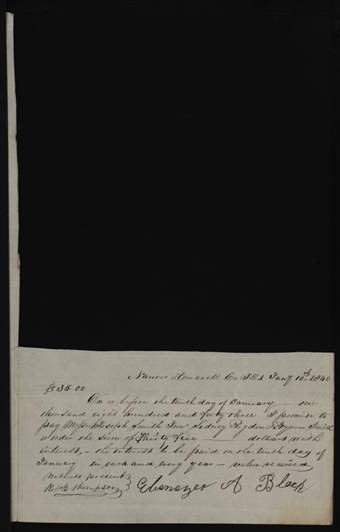 Nauvoo Hancock Co Ills Jany 10th 1840
$35.00
On or before the tenth day of January — one
thousand eight hundred and forty three I promise to
pay Messrs Joseph Smith Junr Sidney Rigdon & Hyrum Smith
or order the sum of Thirty five — dollars with
interest, — the interest to be paid on the tenth day of
January in each and every year — value received
Witness present
R. B. Thompson
Ebenezer A Black